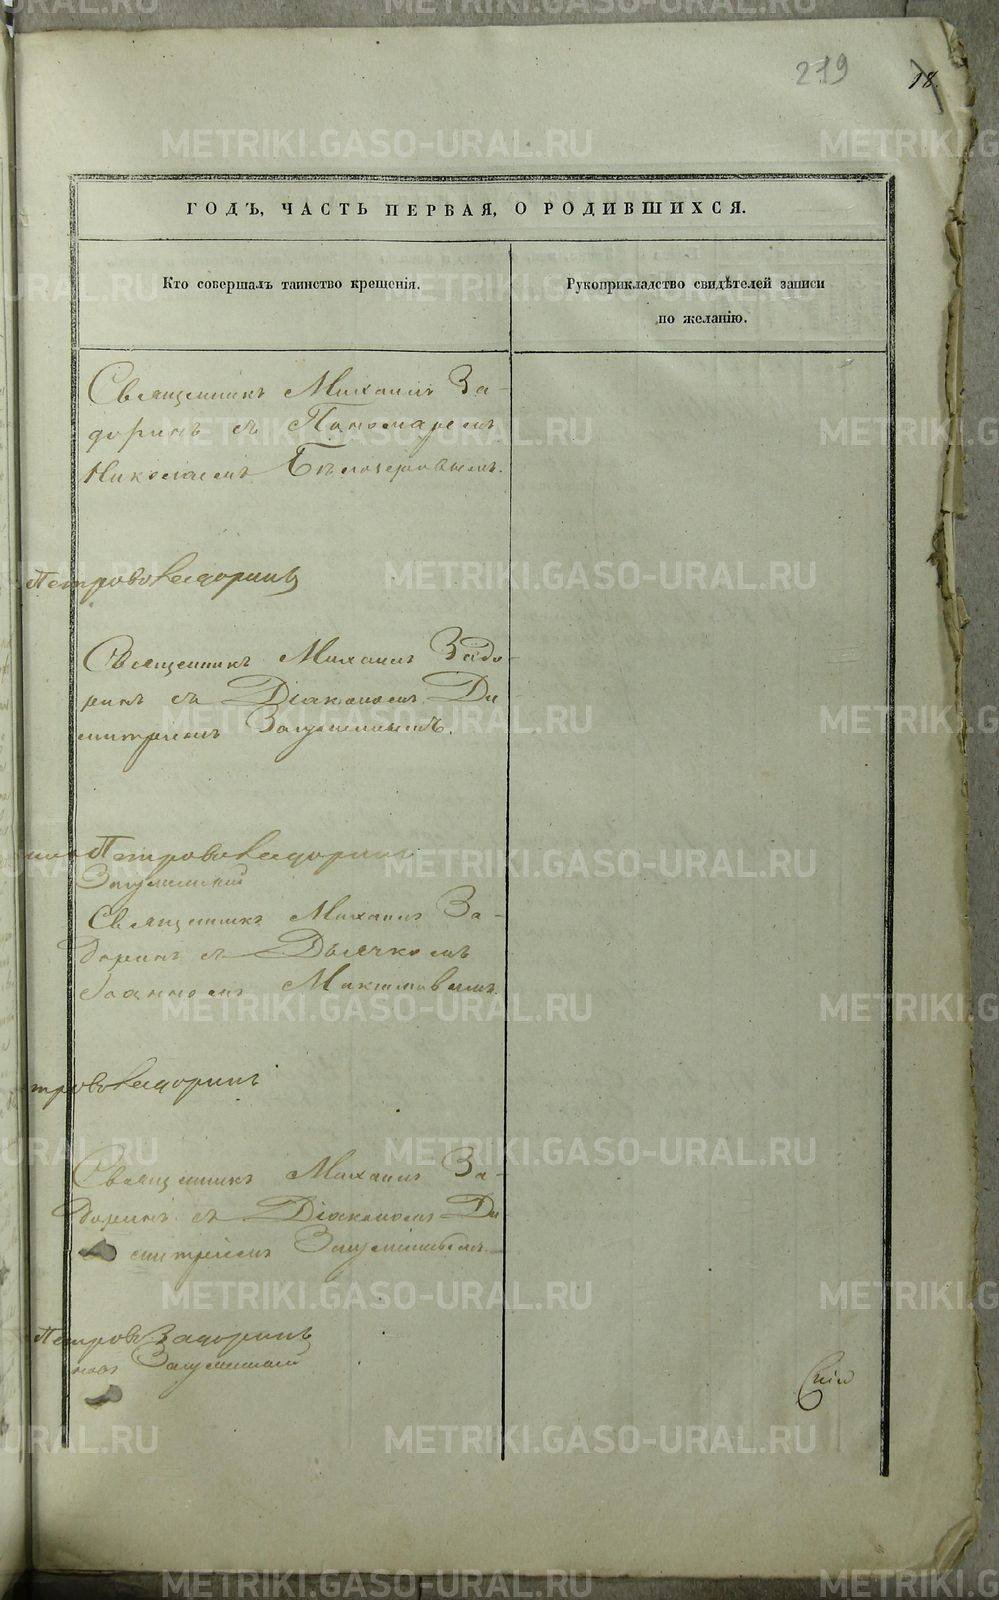 219
18.
ГОДЪ, ЧАСТЬ ПЕРВАЯ, О РОДИВШИХСЯ.
Кто совершалъ таинство крещенія.
Рукоприкладство свидѣтелей записи
по желанію.
Священникъ Михаилъ За-
доринъ съ Пономаремъ
Николаемъ Бѣлозеровымъ.
Петрово Задоринъ
Священникъ Михаилъ Задо-
ринъ съ Діакономъ Ди
митріемъ
Петрово Задоринъ
Священникъ Михаилъ За-
доринъ съ Дьячкомъ
Іоанномъ Максимовымъ.
трово Задоринъ
Священникъ Михаилъ За-
доринъ съ Діакономъ Ди
митріемъ
Петрово Задоринъ
METRIKI.GASO-URAL.RU